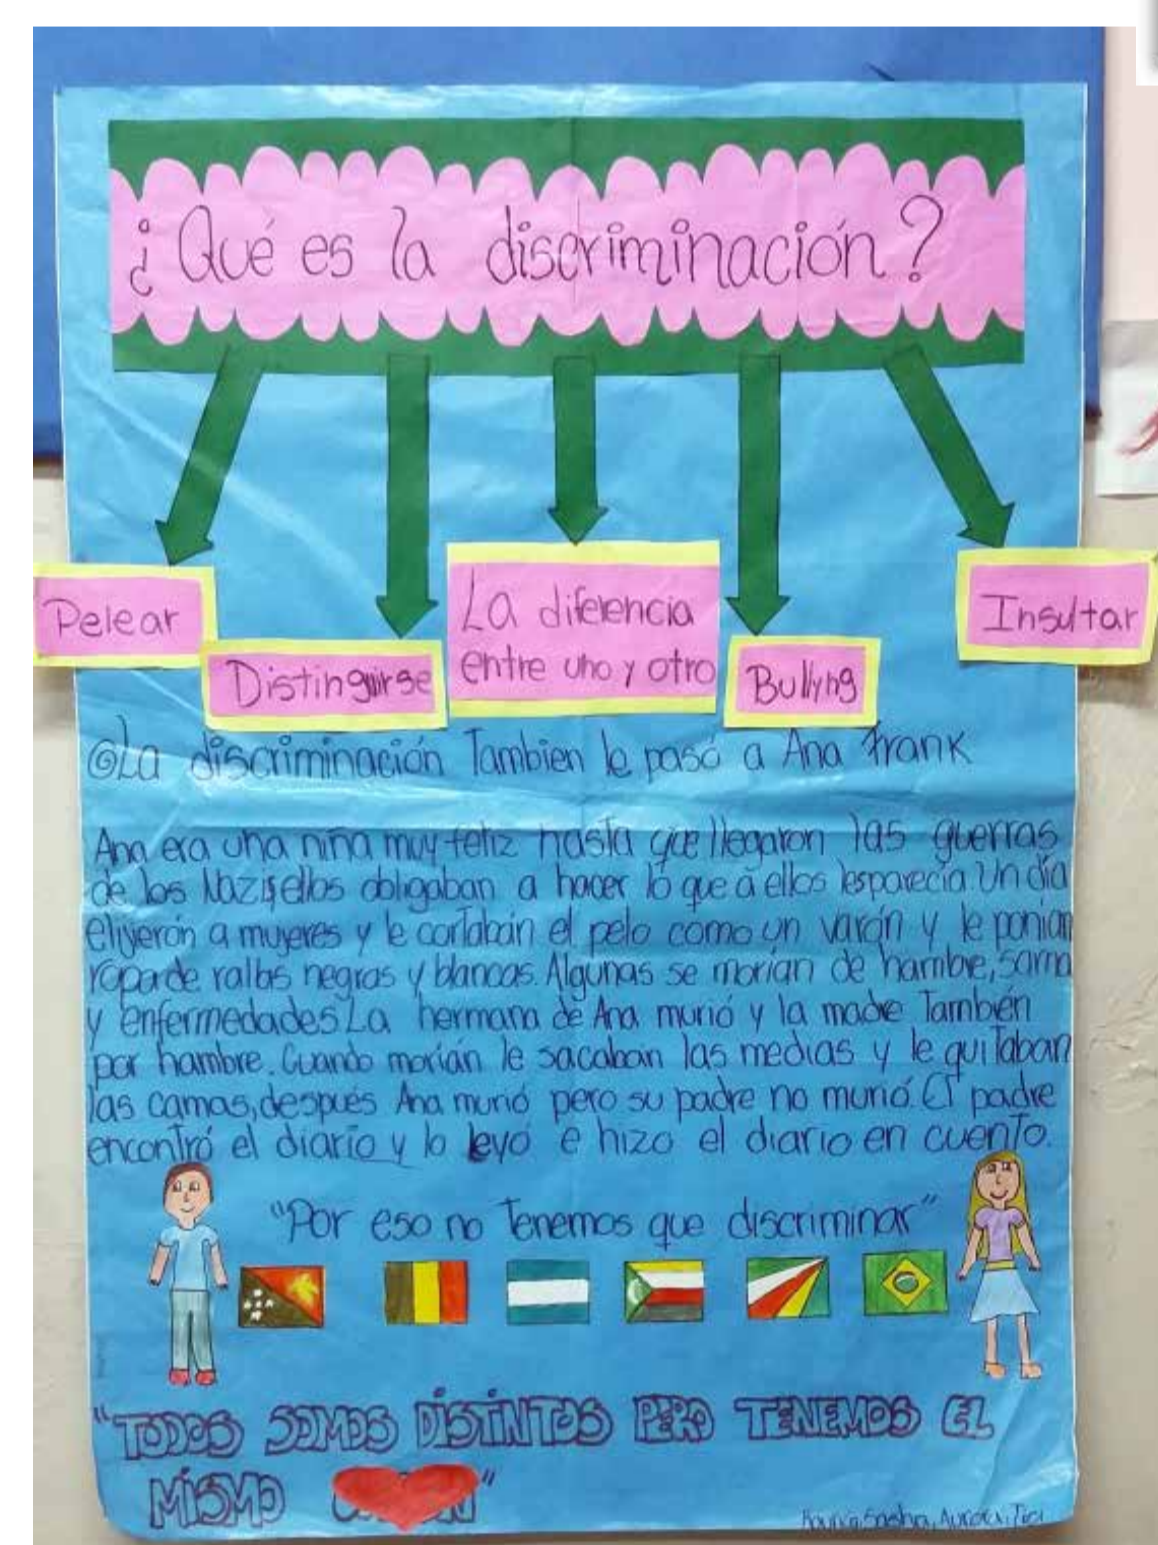 ¿Qué es la discriminación?
Pelear
Distinguirse
La diferencia
entre uno y otro
Bullyng
Insultar
La discriminación Tambien le pasó a Ana Frank
Ana era una niña muy feliz hasta que llegaron las guerras
de los Nazis, ellos obligaban a hacer lo que a ellos lesparecía. Un día
eliyerón a mujeres y le cortabán el pelo como un varón y le ponían
ropa de rallas negras y blancas. Algunas se morían de hambre, sarna
y enfermedades. La hermana de Ana murió y la madre También
por hambre. Cuando morían le sacaban las medias y le quitaban
las camas, después Ana murió pero su padre no murió. El padre
encontró el diario y lo leyó e hizo el diario en cuento.
"Por eso no Tenemos que discriminar"
"TODOS SOMOS DISTINTOS PERO TENEMOS EL
MISMO "
Sasha, Aurora, Tici